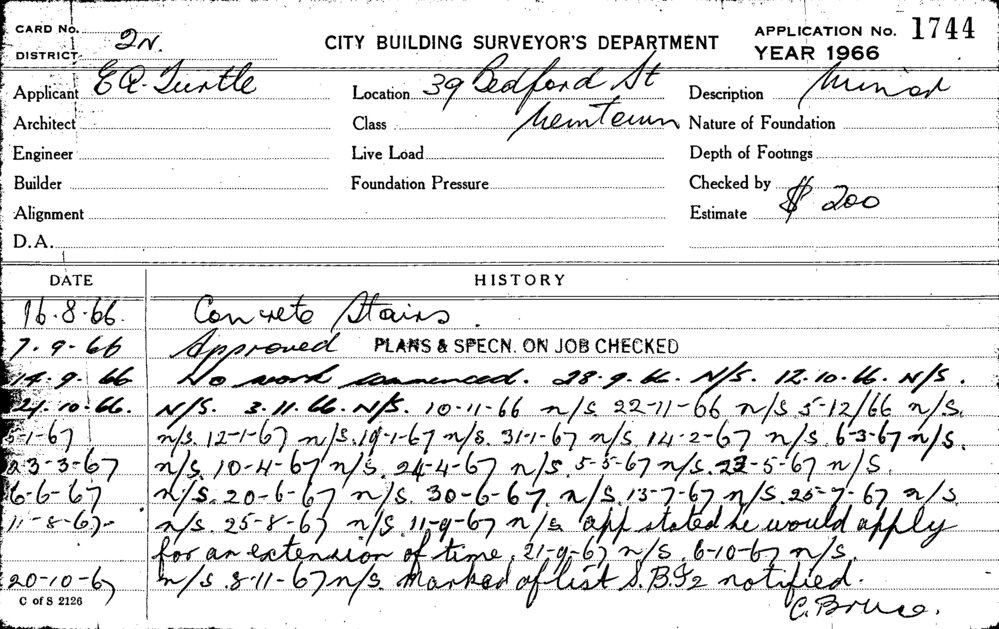 CARD No.
DISTRICT 2N.
CITY BUILDING SURVEYOR'S DEPARTMENT
APPLICATION No. 1744
YEAR 1966
Applicant E A Turtle
Location 39 Bedford St
Description Minor
Architect
Class Newtown
Nature of Foundation
Engineer
Live Load
Depth of Footings
Builder
Foundation Pressure
Checked by
Alignment
Estimate $ 200
D.A.
DATE HISTORY
16.8.66. Concrete Stairs.
7.9.66 Approved PLANS & SPECN. ON JOB CHECKED
14.9.66 No work commenced. 28.9.66. N/S. 12.10.66. N/S.
24.10.66. N/S. 3.11.66. N/S. 10-11-66 n/s 22-11-66 n/s 5-12/66 n/s.
5-1-67 n/s. 12-1-67 n/s. 19-1-67 n/s. 31-1-67 n/s. 14-2-67 n/s. 6-3-67 n/s.
23-3-67 n/s. 10-4-67 n/s. 24-4-67 n/s. 5-5-67 n/s. 23-5-67 n/s.
6-6-67 n/s. 20-6-67 n/s. 30-6-67 n/s. 13-7-67 n/s. 25-7-67 n/s
11-8-67- n/s. 25-8-67 n/s. 11-9-67 n/s. app stated he would apply
for an extension of time. 21-9-67 n/s. 6-10-67 n/s.
20-10-67 n/s. 8-11-67 n/s. marked of list notified.
C of S 2126
C. Bruce.